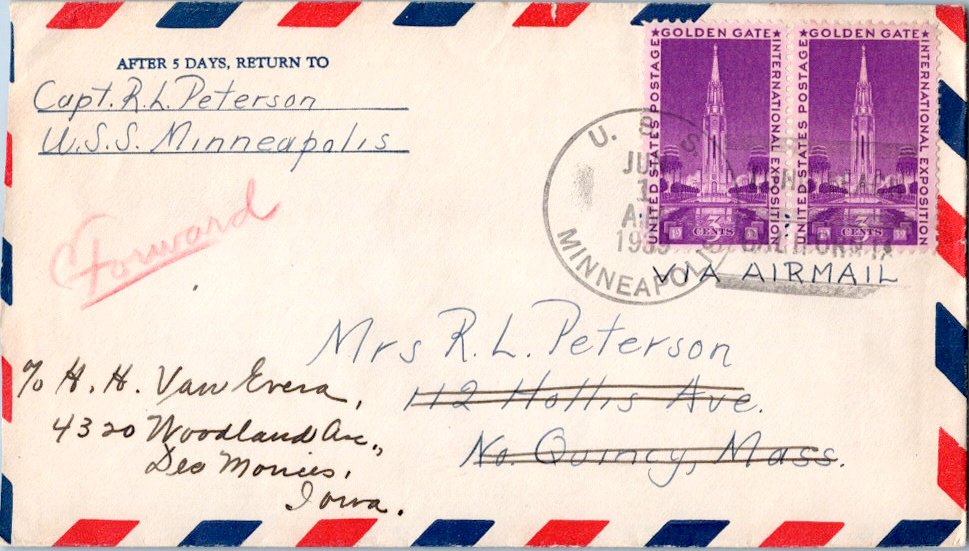 AFTER 5 DAYS, RETURN TO
Capt. R. L. Peterson
U.S.S. Minneapolis
Forward
UNITED STATES POSTAGE
GOLDEN GATE
INTERNATIONAL EXPOSITION
19 3 CENTS 39
UNITED STATES POSTAGE
GOLDEN GATE
INTERNATIONAL EXPOSITION
19 3 CENTS 39
U. S. S.
MINNEAPOLIS
1939
CALIFORNIA
VIA AIRMAIL
Mrs R. L. Peterson
112 Hollis Ave.
No. Quincy, Mass.
℅ H. H. Van Evera,
4320 Woodland Ave.,
Des Moines,
Iowa.